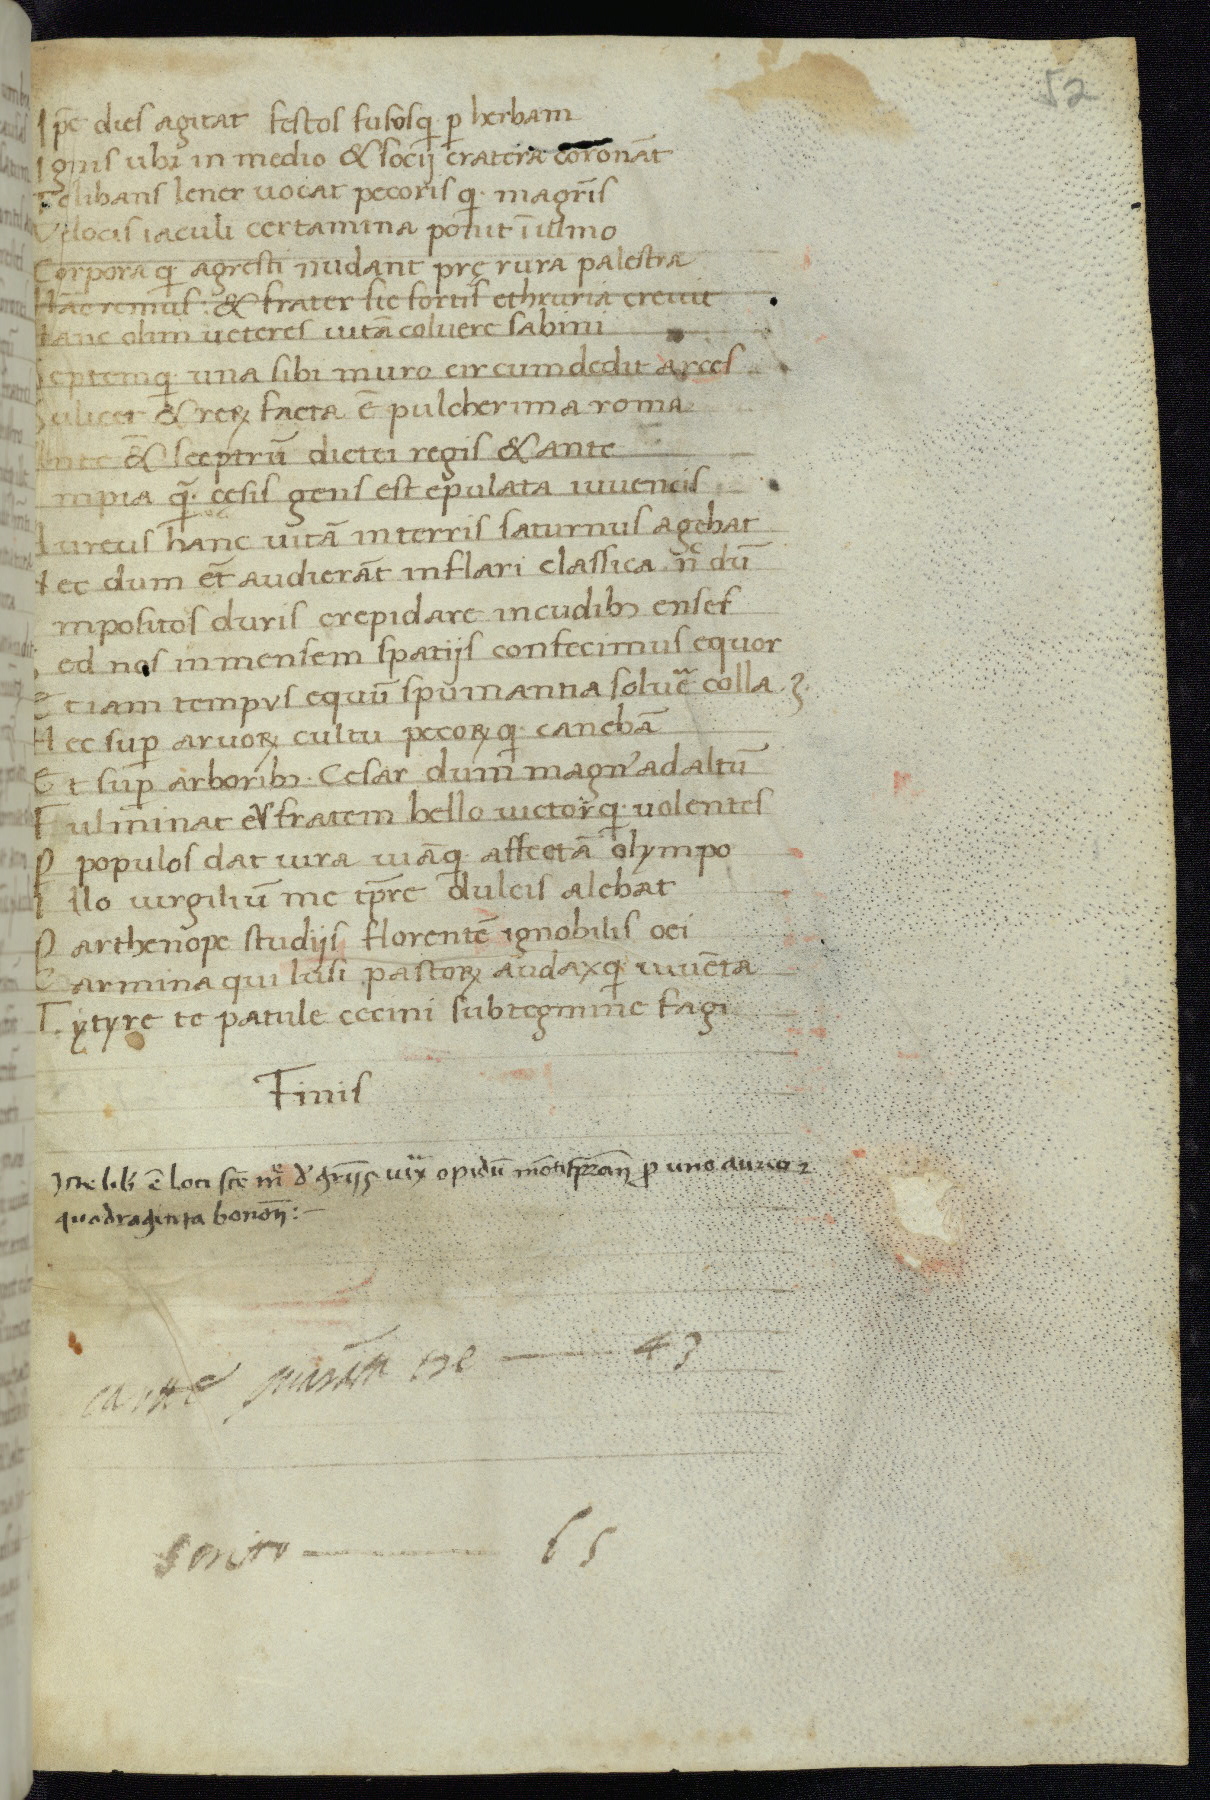 52
Ip̅e dies agitat festos fusosq; ꝑ herbam
Ignis ubi in medio & socij cratera coronāt
Te libans lenee vocat pecoris q; magrīs
Velocis iaculi certamina ponit ī ulmo
Corpora q; agresti nudant prę rura palestra
Hāc remus: & frater sic fortis ethruria creuit
Hanc olim ueteres uitā coluere sabini
Septemq; una sibi muro circumdedit arces
Scilicet & reꝝ facta ē pulcherima roma
Ante &̄ sceptrū dictei regis & ante
Impia q̄. cęsis gens est epulata iuvencis
Aureus hanc uitā in terris saturnus agebat
Nec dum et̄ audierāt inflari classica n̄ dū
Impositos duris crepidare incudibꝫ enses
Sed nos inmensem spatijs confecimus equor
Et iam tempus equū spumantia soluēr colla.
Hec sup̱ aruoꝝ cultu pecoꝝ q; canebā
Et sup̱ arboribꝫ. Cesar dum magn᾽ ad altū
Fulminat eufratem bello uictorq; uolentes
P populos dat iura uiāq; affectā olympo
Illo uirgiliū me tp̄re dulcis alebat
Parthenope studijs florentē ignobilis oci
Carmina qui lusi pastoꝝ audaxq; iuuēta
Tytyre te patule cecini sub tegmine fagi
Finis
Iste lib᾽ ē loci sc̄e mͤ d᾽ gr̄ijs opidū pro uno auro
quadraginta bonoñ:—
carte 43
scrito —— 65